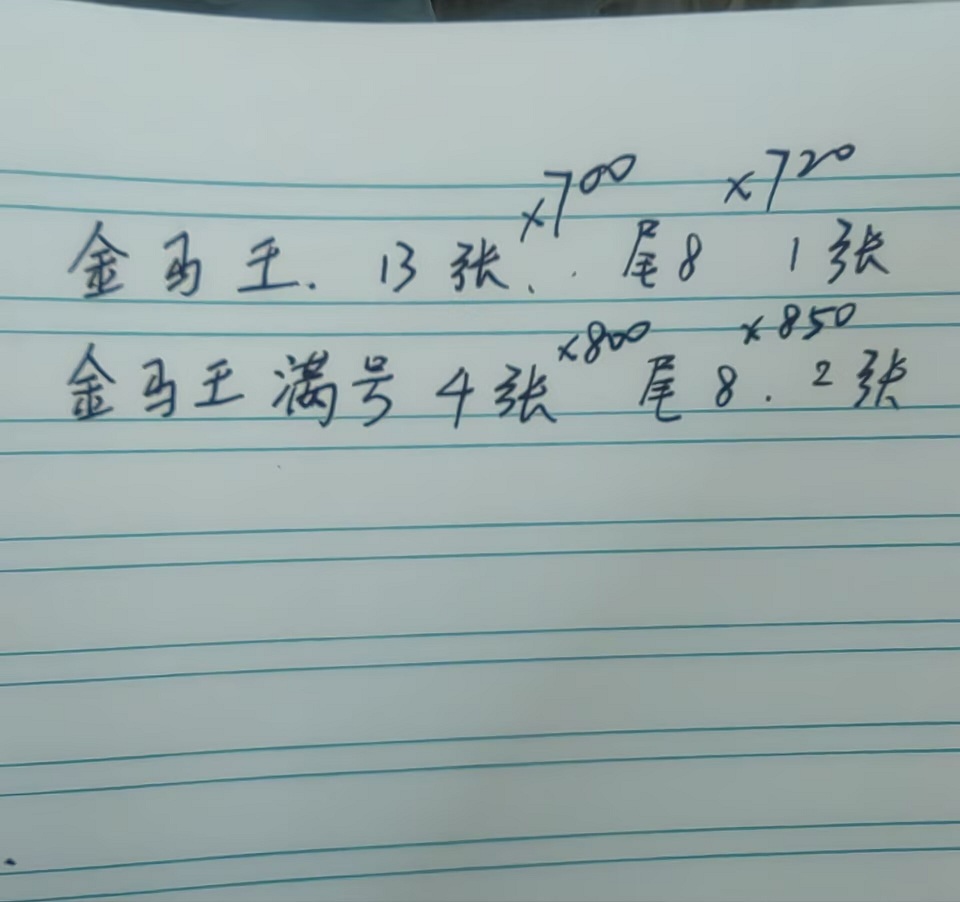 ×700 ×720
金马王. 13张. 尾8 1张
×800 ×850
金马王满号4张 尾8. 2张